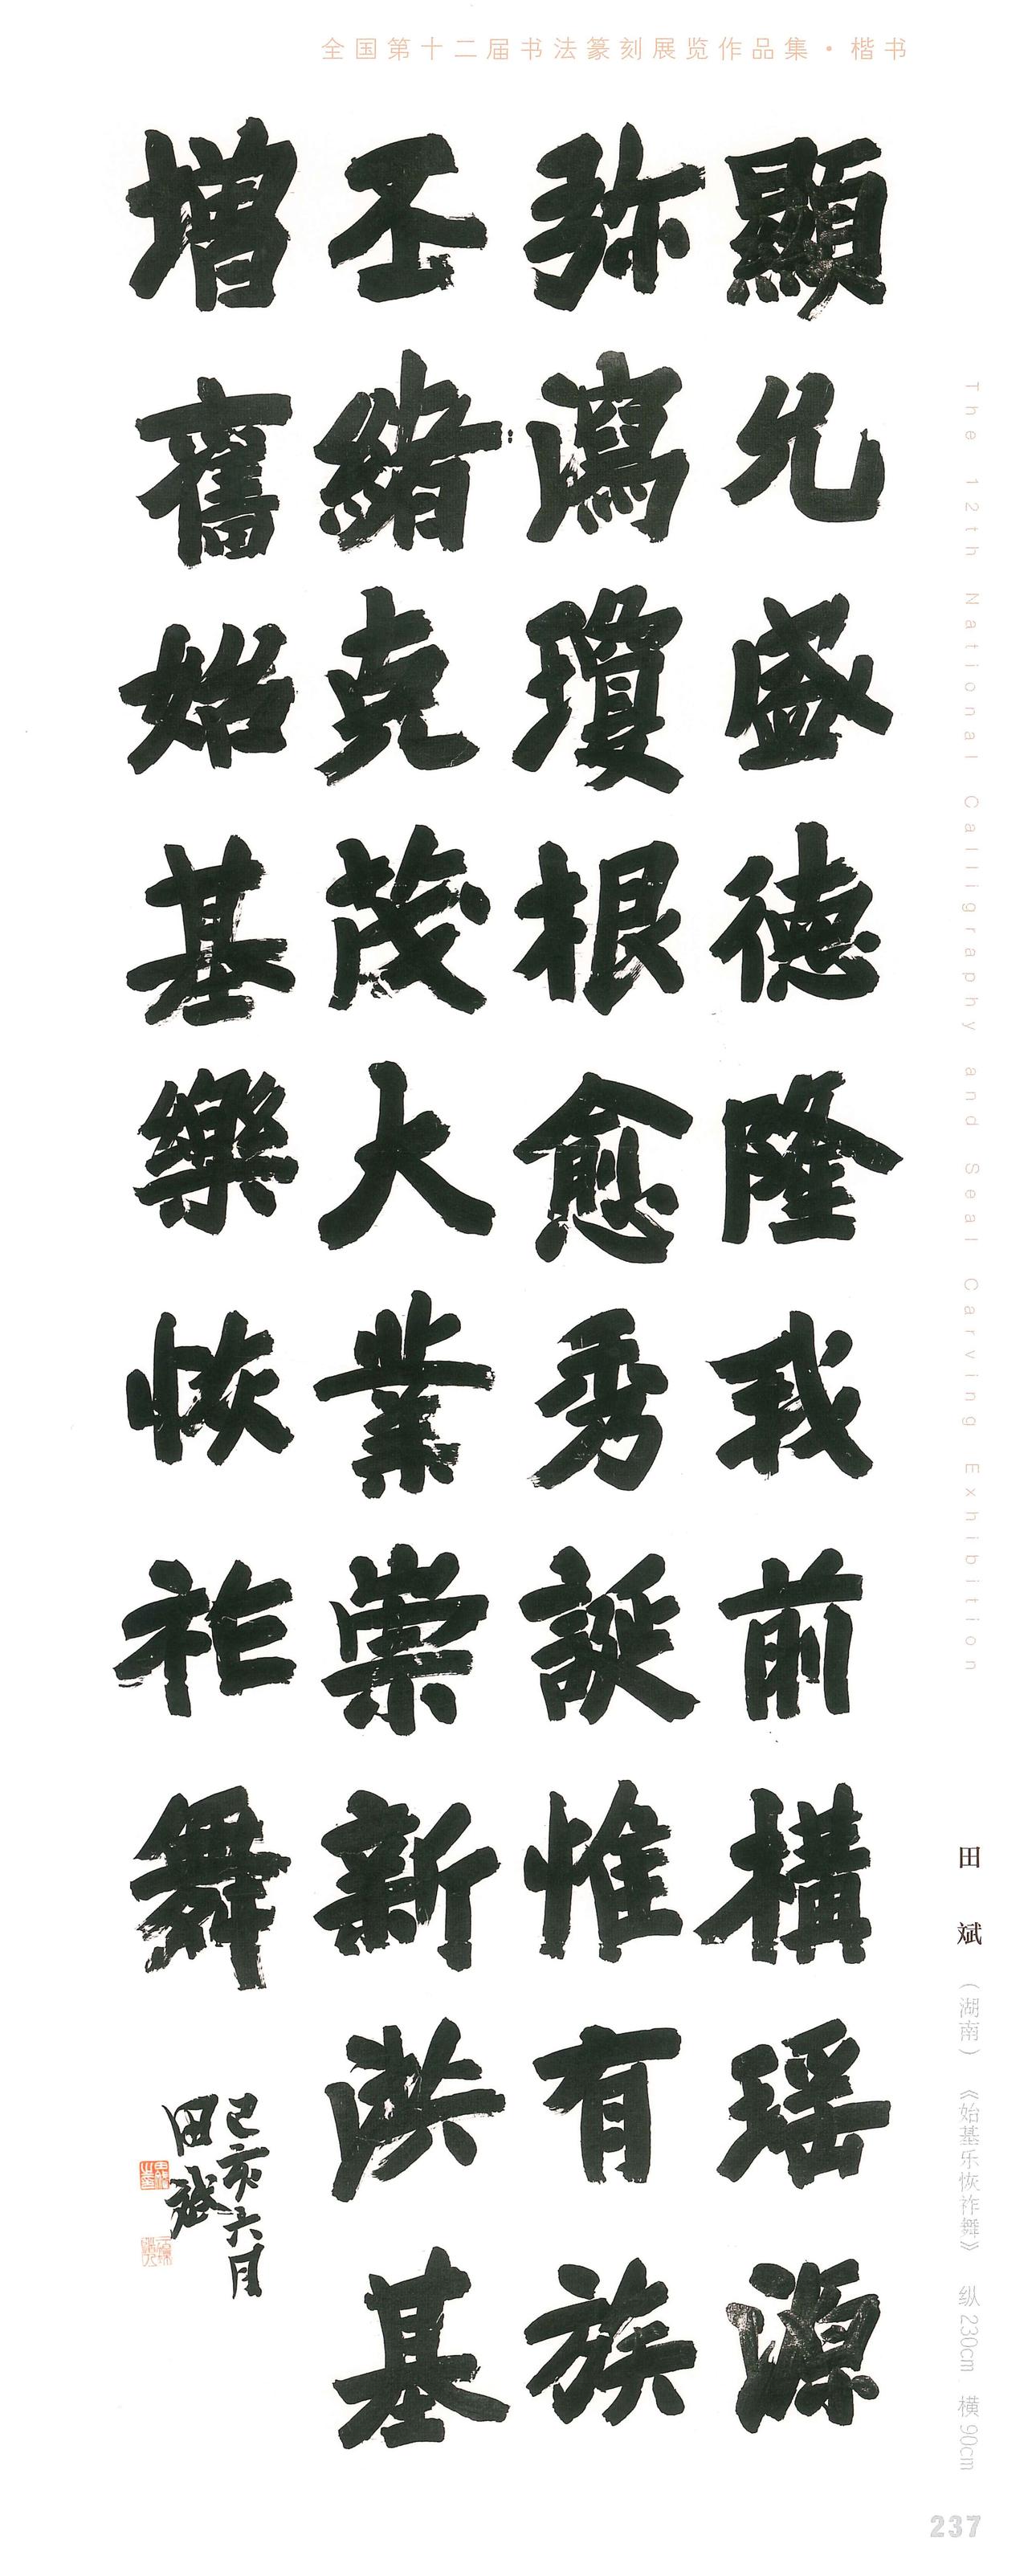 全国第十二届书法篆刻展览作品集·楷书
顯允盛德隆我前構瑶源
弥瀉瓊根愈秀誕惟有族
丕緒克茂大業崇新洪基
增舊始基樂恢祚舞
己亥六月
田斌
The 12th National Calligraphy and Seal Carving Exhibition
田斌（湖南）《始基乐恢祚舞》 纵230cm 横90cm
237